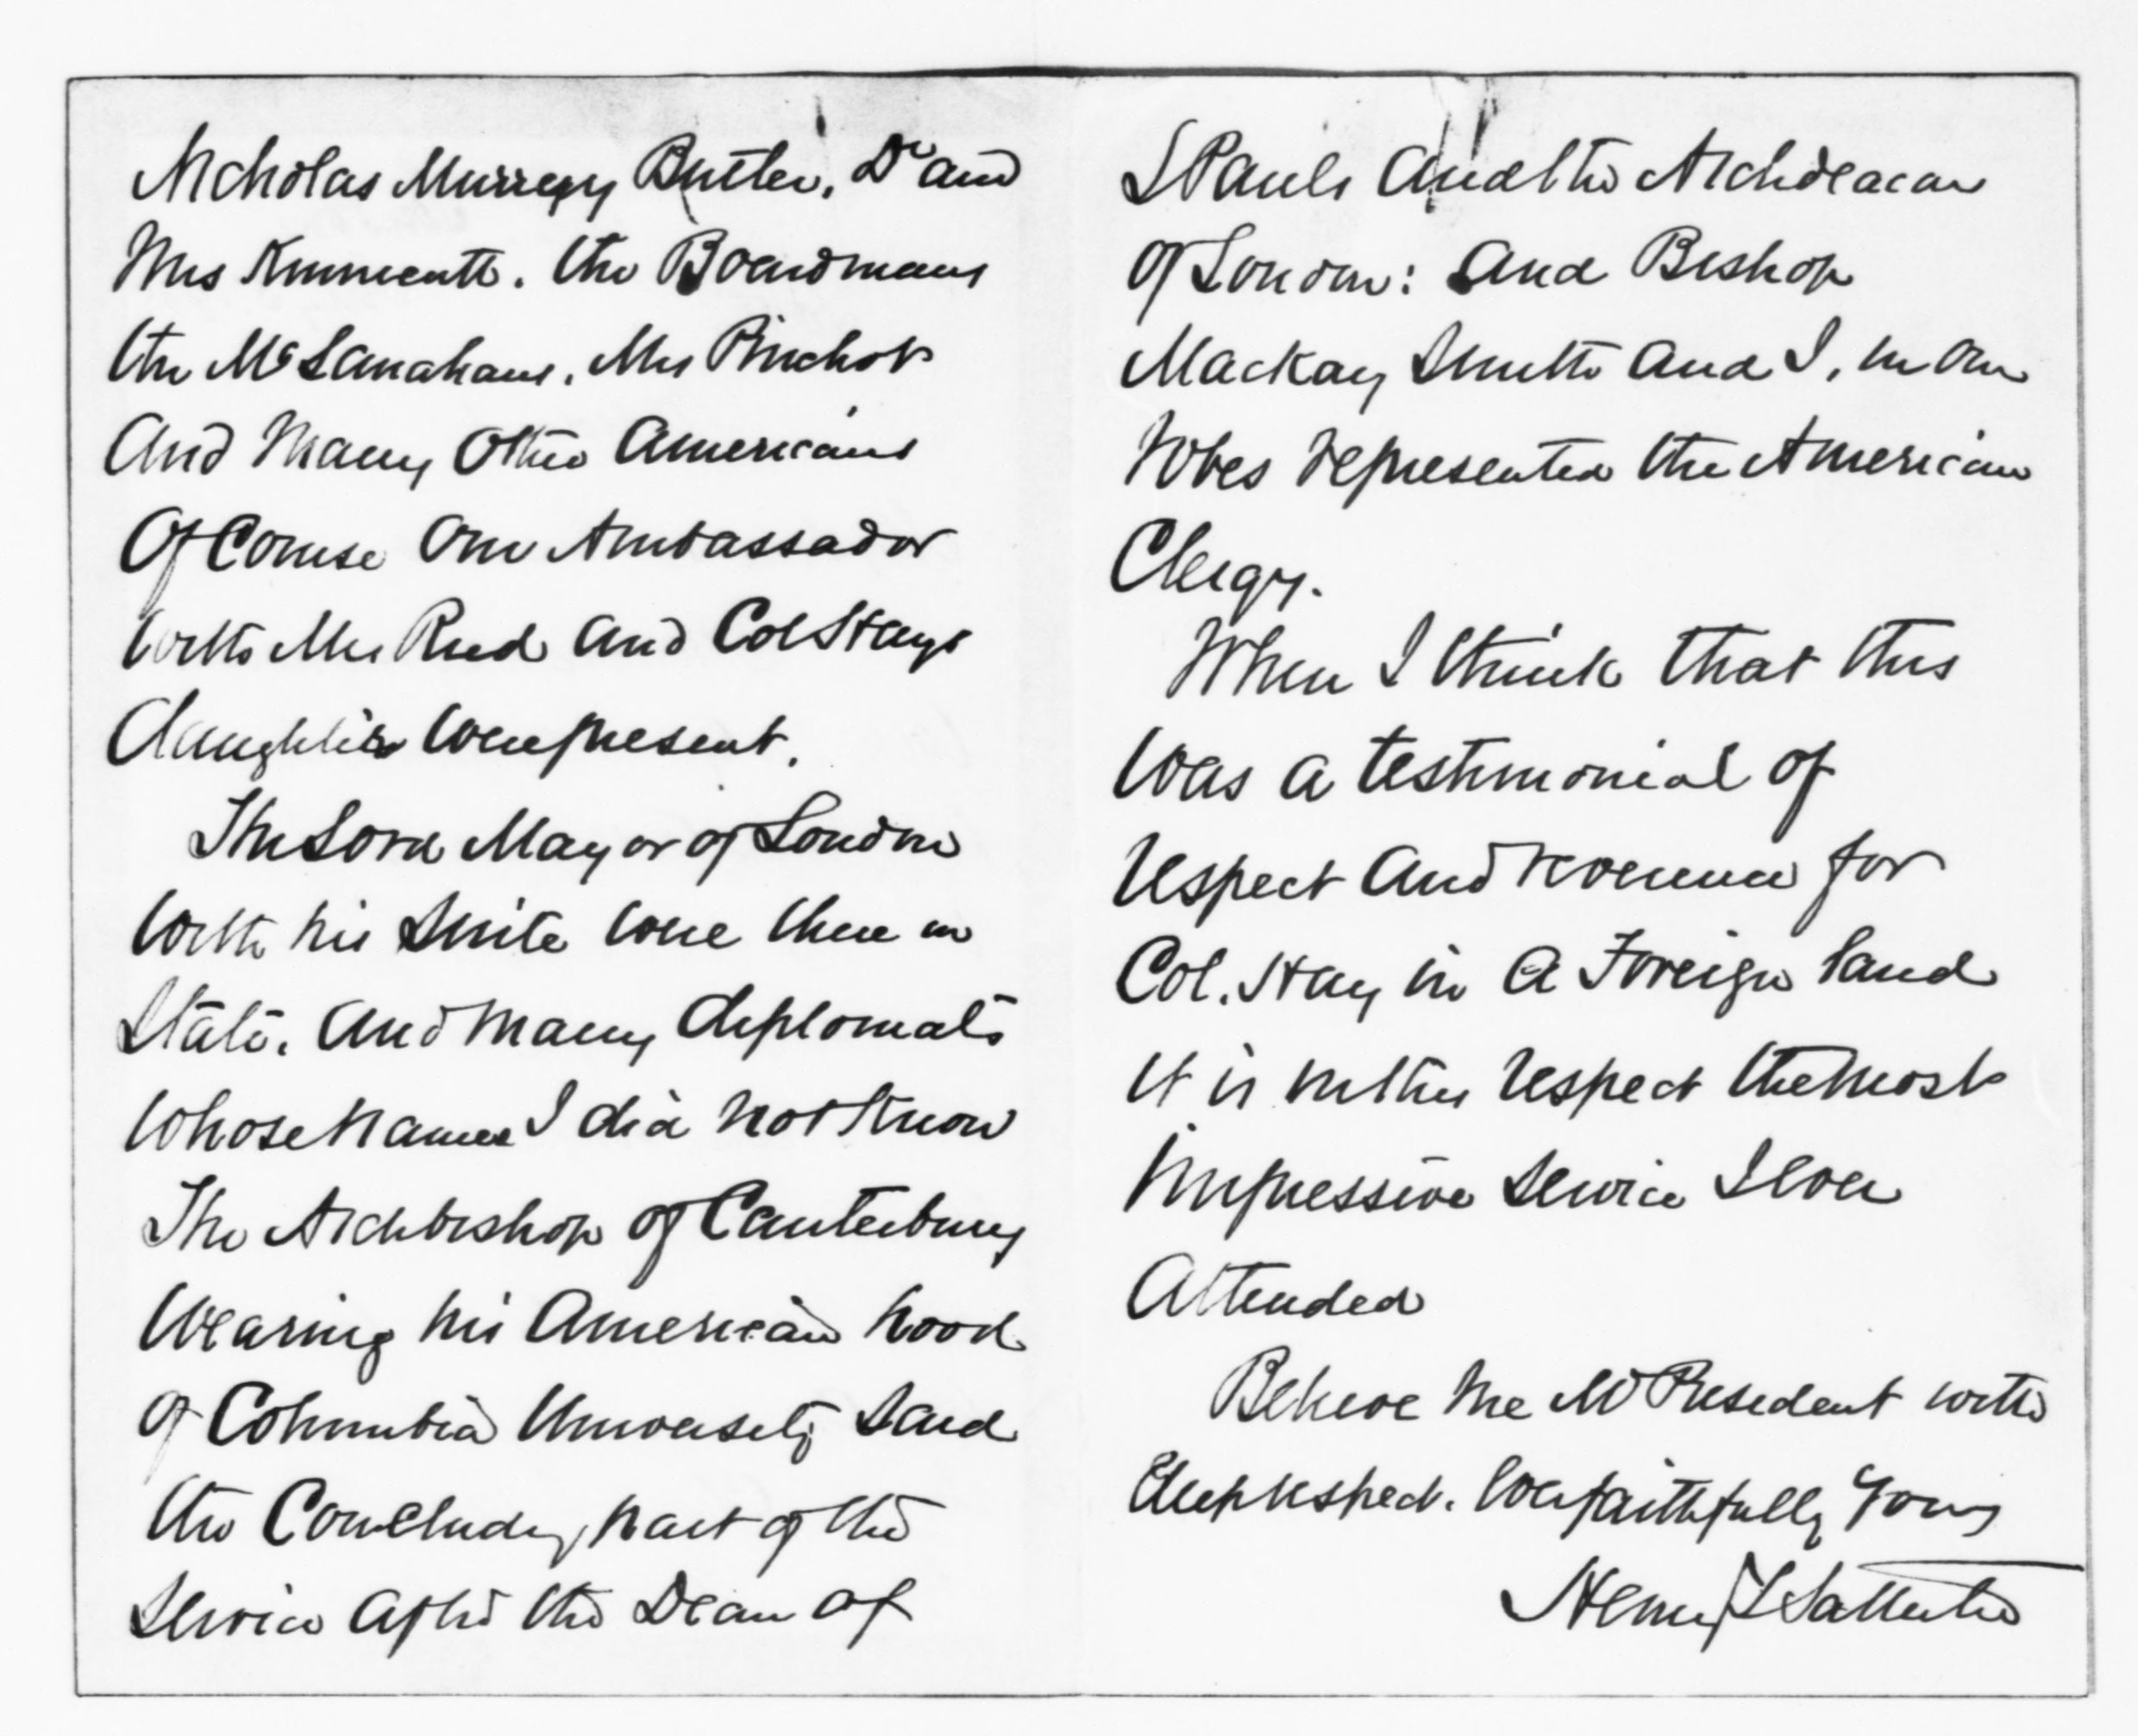 Nicholas Murray Butler, Dr and
Mrs Kinnicutt. the Boardmans
the McLanahans, Mrs Pinchot
And Many Other Americans
Of Course Our Ambassador
With Mrs Reid and Col Hays
daughter were present.
The Lord Mayor of London
with his Suite were there in
State. And Many diplomats
Whose Names I did Not Know
The Archbishop of Canterbury
Wearing his American hood
of Columbia University Said
the Concluding part of the
Service After the Dean of
St Pauls And the Archdeacon
of London: And Bishop
Mackay Smith And I, in our
robes represented the American
Clergy.
When I think that this
Was a testimonial of
respect And reverence for
Col. Hay in a Foreign land
it is in this respect the most
Impressive Service I ever
Attended
Believe me Mr President with
deep respect. Ever faithfully Yours
Henry Y Satterlee